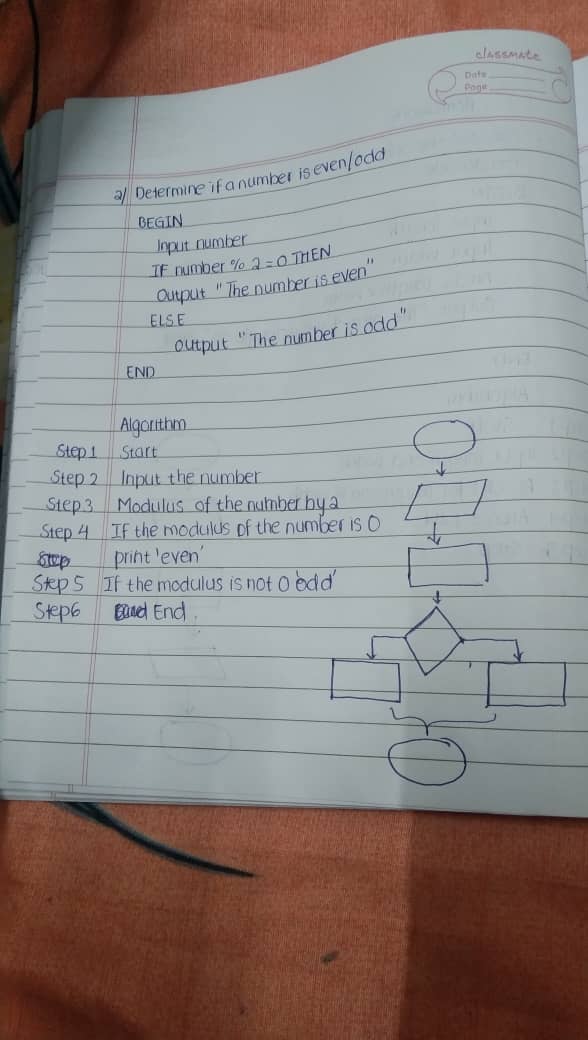 classmate
Date
Page
2/ Determine if a number is even/odd
BEGIN
Input number
IF number % 2 = 0 THEN
Output "The number is even"
ELSE
output "The number is odd"
END
Algorithm
Step 1 Start
Step 2 Input the number
Step 3 Modulus of the number by 2
Step 4 If the modulus of the number is 0
Step print 'even'
Step 5 If the modulus is not 0 'odd'
Step 6 End.